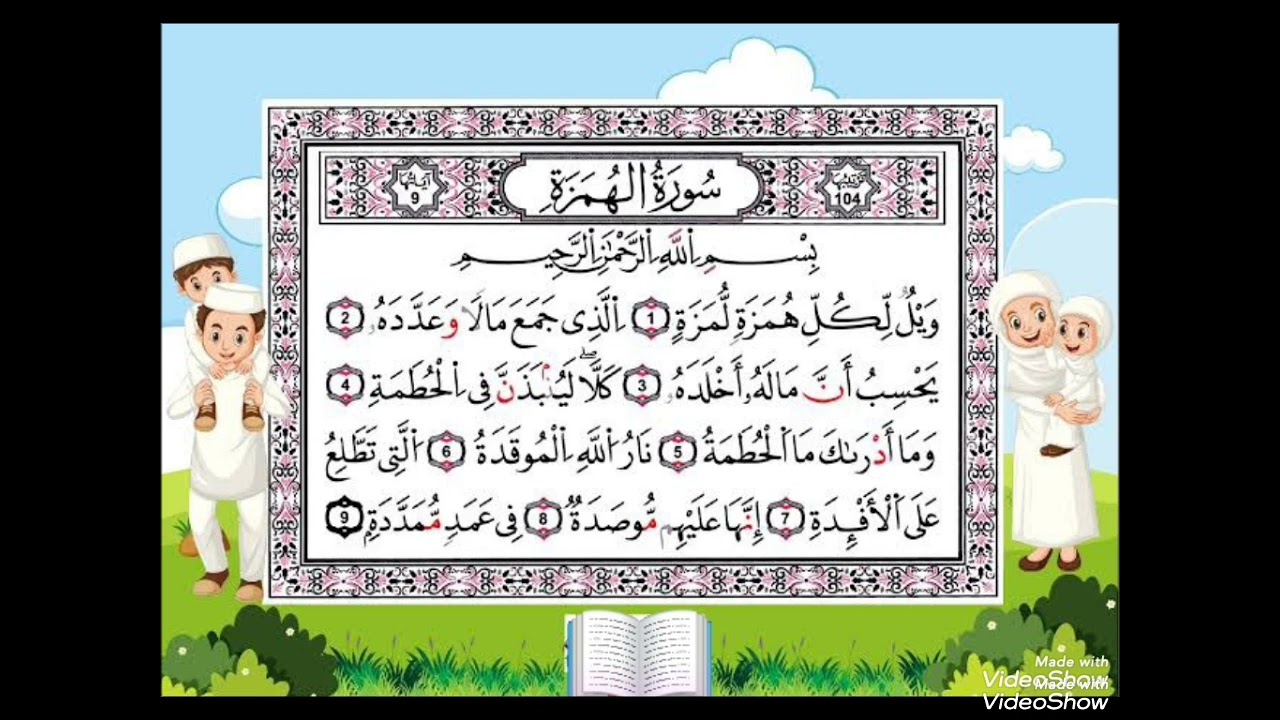 ترتيبها 104 سُورَةُ الهُمَزَةِ آياتها 9
بِسْمِ اِ۬للَّهِ اِ۬لرَّحْمَٰنِ اِ۬لرَّحِيمِ
وَيْلٌ لِّكُلِّ هُمَزَةٍ لُّمَزَةٍ 1 اِ۬لَّذِي جَمَعَ مَالًا وَعَدَّدَهُۥ 2
يَحْسِبُ أَنَّ مَالَهُۥ أَخْلَدَهُۥ 3 كَلَّاۖ لَيُنۢبَذَنَّ فِي اِ۬لْحُطَمَةِ 4
وَمَا أَدْرَىٰكَ مَا اَ۬لْحُطَمَةُ 5 نَارُ اُ۬للَّهِ اِ۬لْمُوقَدَةُ 6 اُ۬لَّتِي تَطَّلِعُ
عَلَى اَ۬لْأَفْـِٔدَةِ 7 إِنَّهَا عَلَيْهِم مُّوصَدَةٌ 8 فِي عَمَدٍ مُّمَدَّدَةٍ 9
Made with
VideoShow
Made with
VideoShow